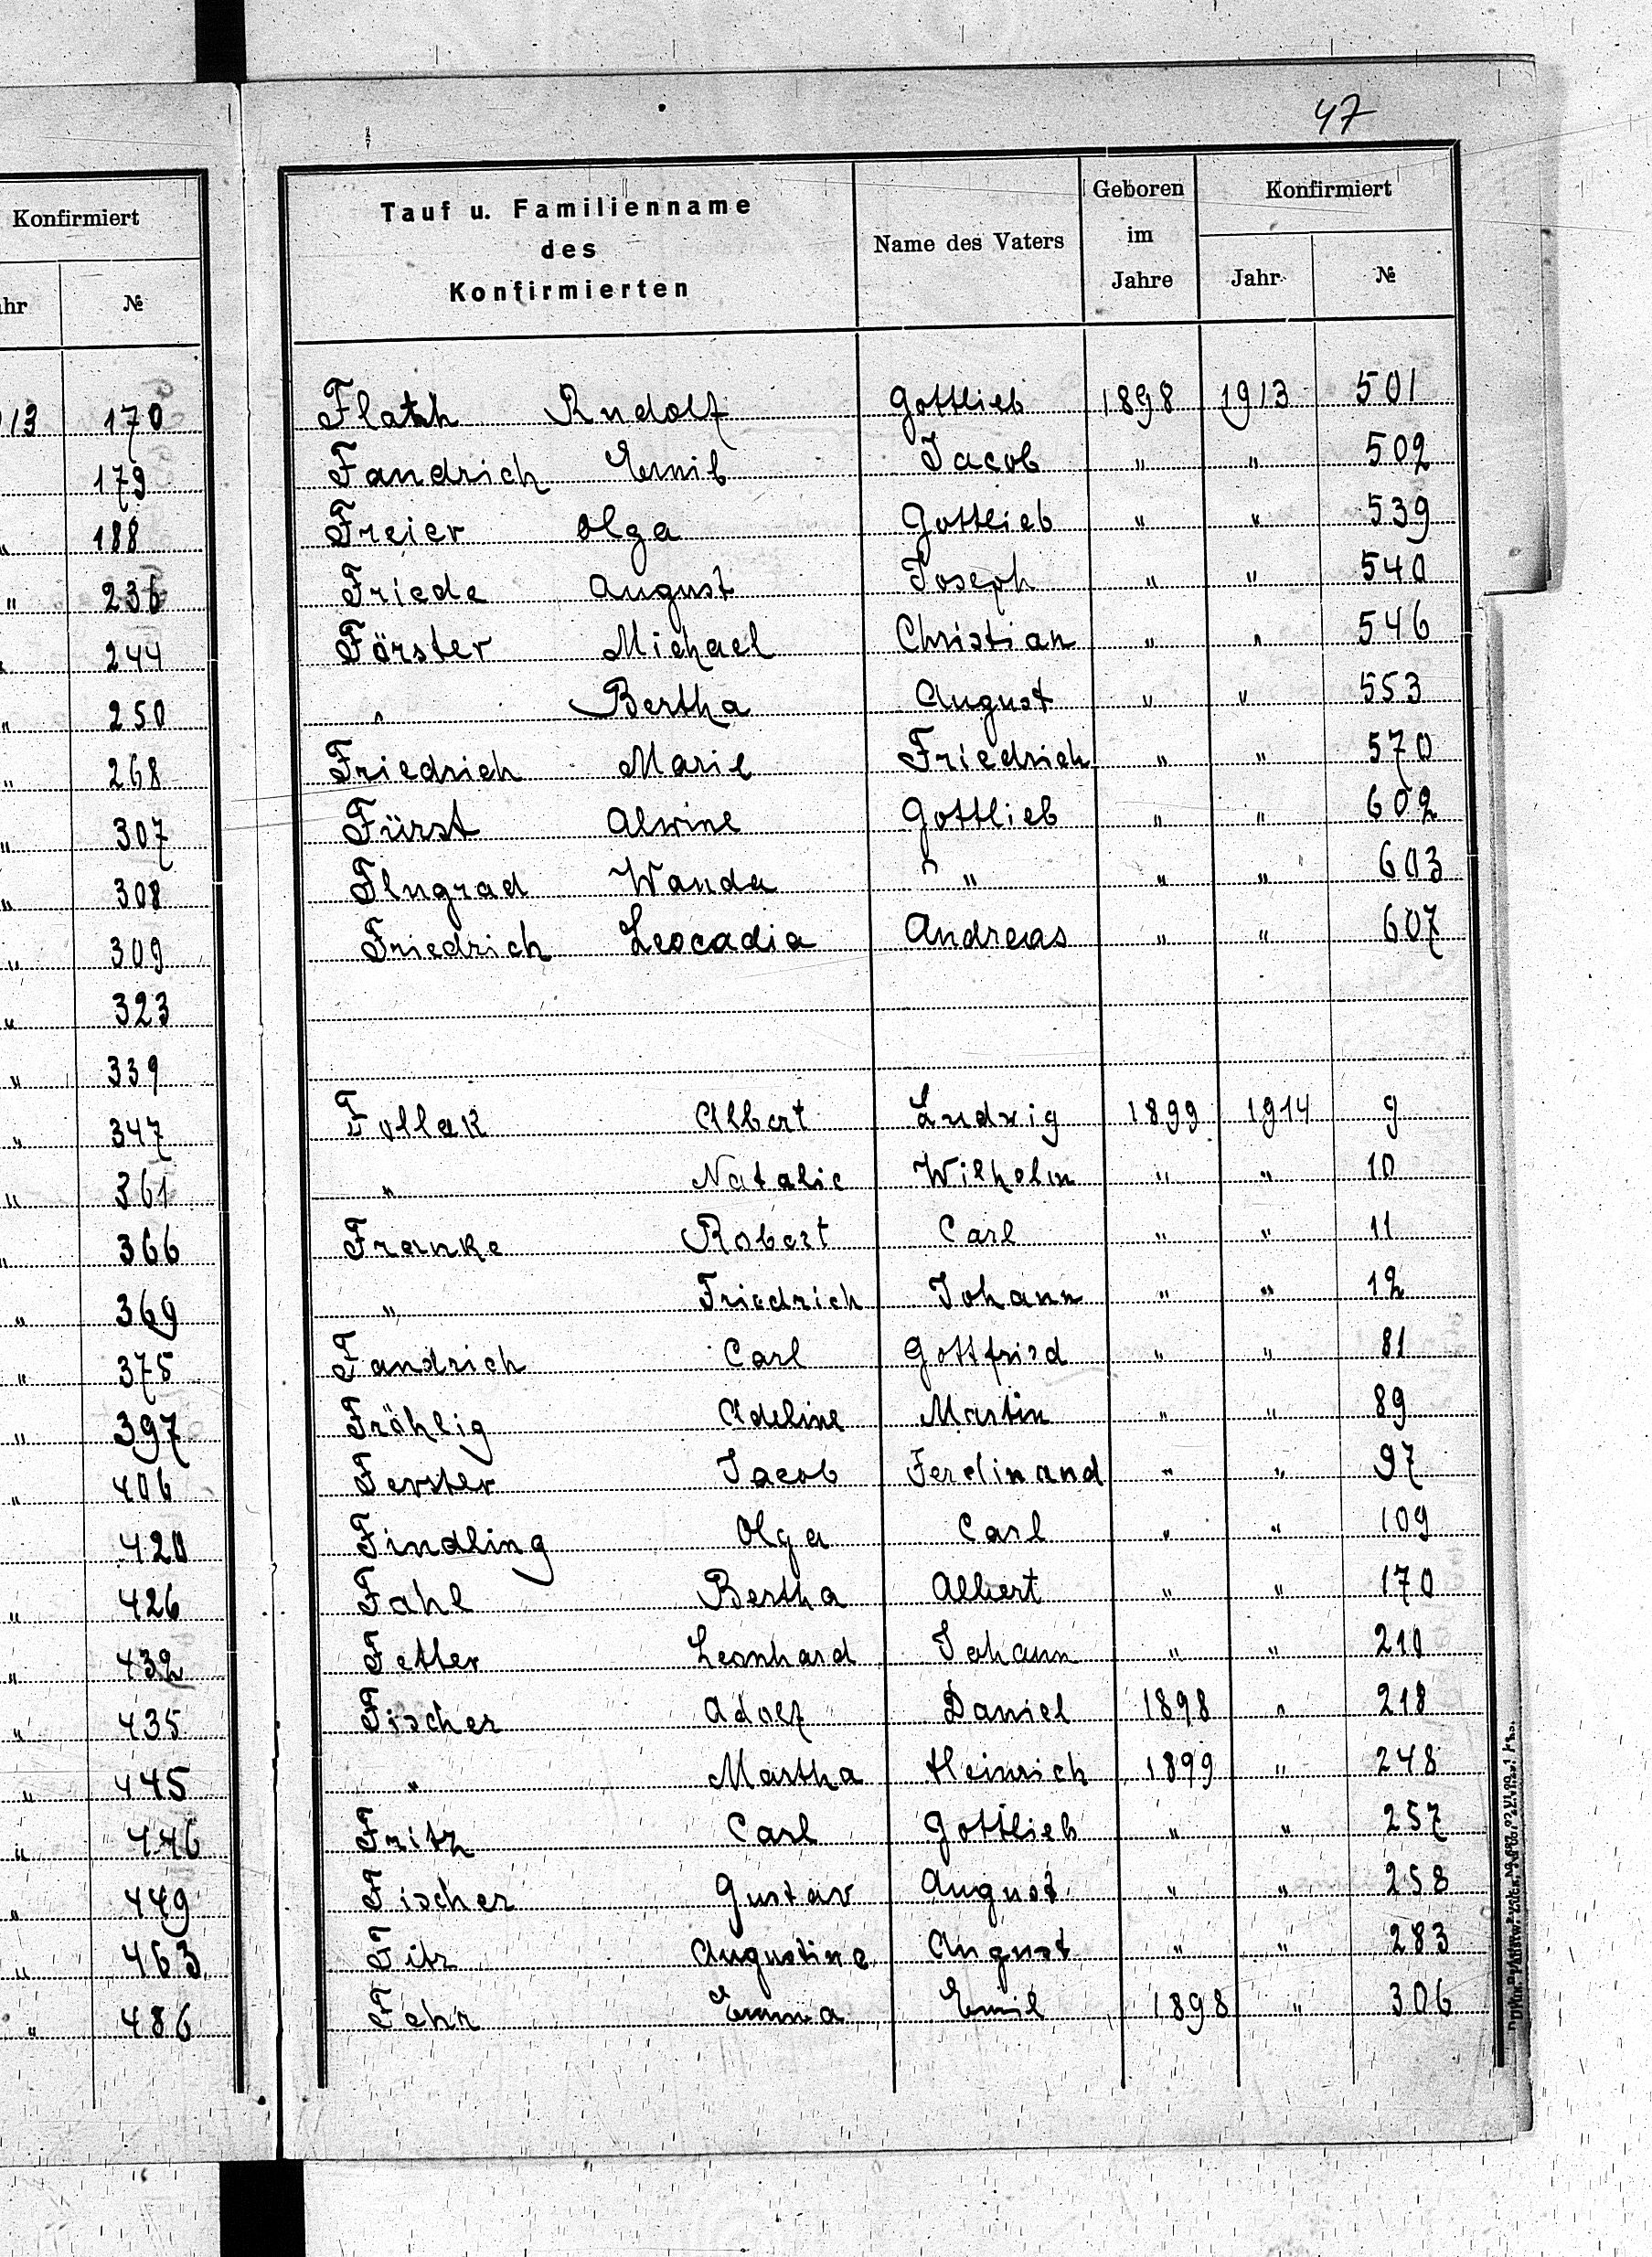 47
Konfirmiert
ahr №
913 170
179
" 188
" 236
" 244
" 250
" 268
" 307
" 308
" 309
" 323
" 339
" 347
" 361
" 366
" 369
" 375
" 397
" 406
420
" 426
" 432
" 435
" 445
" 446
" 449
" 463
" 486
Tauf u. Familienname
des
Konfirmierten
Name des Vaters
Geboren
im
Jahre
Konfirmiert
Jahr №
Flath Rudolf Gottlieb 1898 1913 501
Fandrich Emil Jacob " " 502
Freier Olga Gottlieb " " 539
Friede August Joseph " " 540
Förster Michael Christian " " 546
" Bertha August " " 553
Friedrich Marie Friedrich " " 570
Fürst Alwine Gottlieb " " 602
Flugrad Wanda " " " 603
Friedrich Leocadia Andreas " " 607
Follak Albert Ludwig 1899 1914 9
" Natalie Wilhelm " " 10
Franke Robert Carl " " 11
" Friedrich Johann " " 12
Fandrich Carl Gottfried " " 81
Fröhlig Adeline Martin " " 89
Ferster Jacob Ferdinand " " 97
Findling Olga Carl " " 109
Fahl Bertha Albert " " 170
Fetter Leonhard Johann " " 210
Fischer Adolf Daniel 1898 " 218
" Martha Heinrich 1899 " 248
Fritz Carl Gottlieb " " 257
Fischer Gustav August " " 258
Fitz Augustine August " " 283
Fehr Emma Emil 1898 " 306